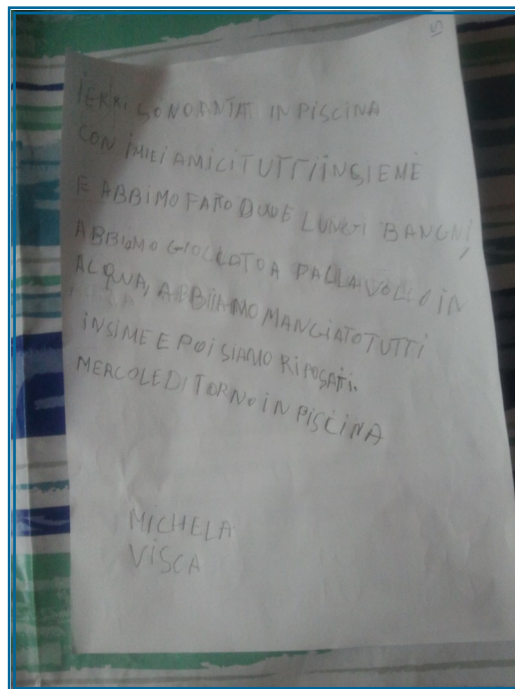 5
IERRI SONO ANTATA IN PISCINA
CON I MIEI AMICI TUTTI INGSIEME
E ABBIMO FATO DUUE LUNGI BANGNI,
ABBIAMO GIOCCATO A PALLAVOLLO IN
ACQUA, ABBIAMO MANGIATO TUTTI
INSIME E POI SIAMO RIPOSATI.
MERCOLEDI TORNO IN PISCINA
MICHELA
VISCA